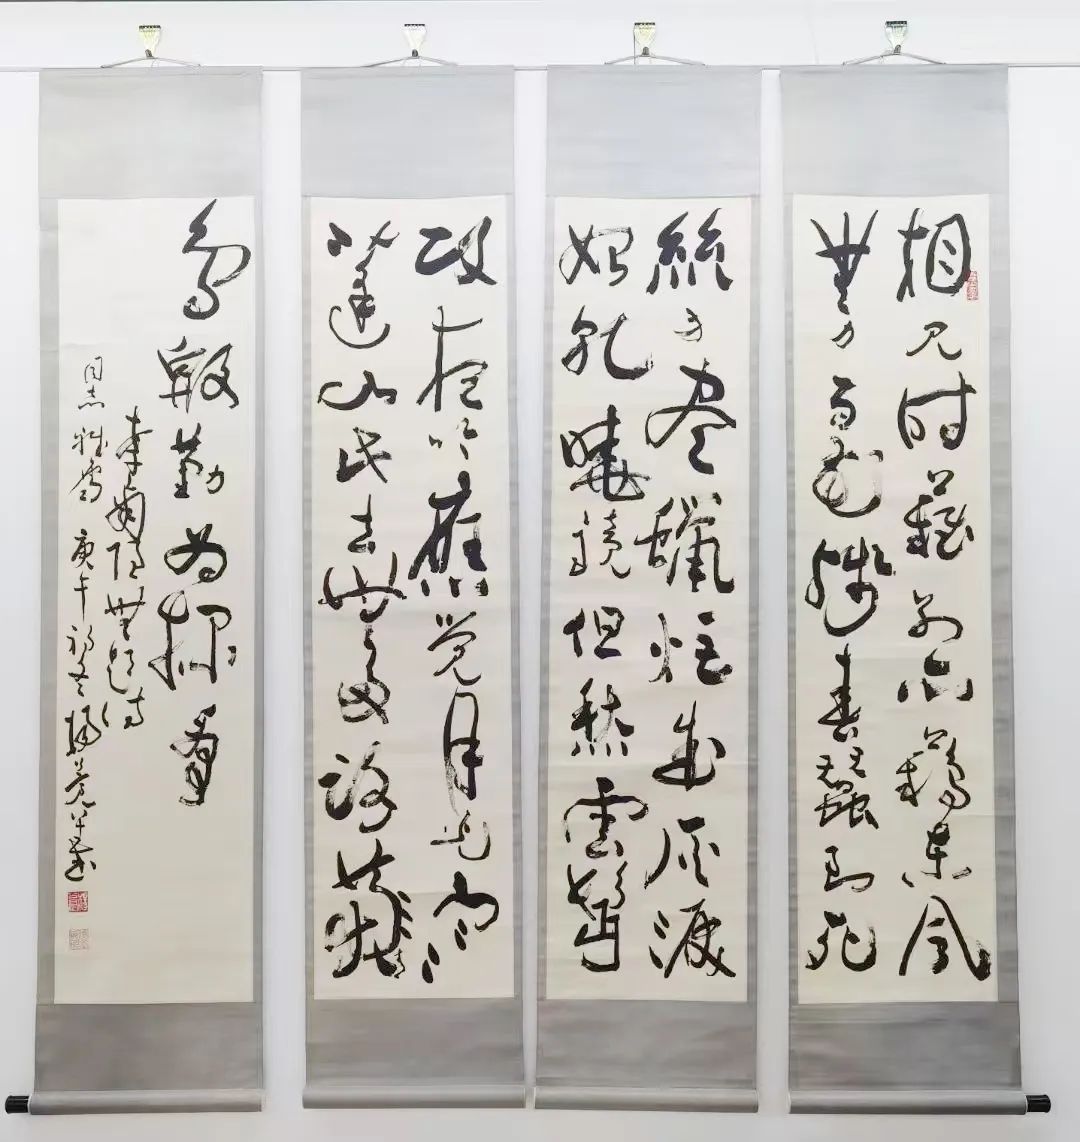 相見時難別亦難東風
無力百花殘春蠶到死
絲方盡蠟炬成灰淚
始乾曉鏡但愁雲鬢
改夜吟應覺月光寒
蓬山此去無多路青
鳥殷勤為探看
李商隱無題詩
同志雅屬 庚午初冬